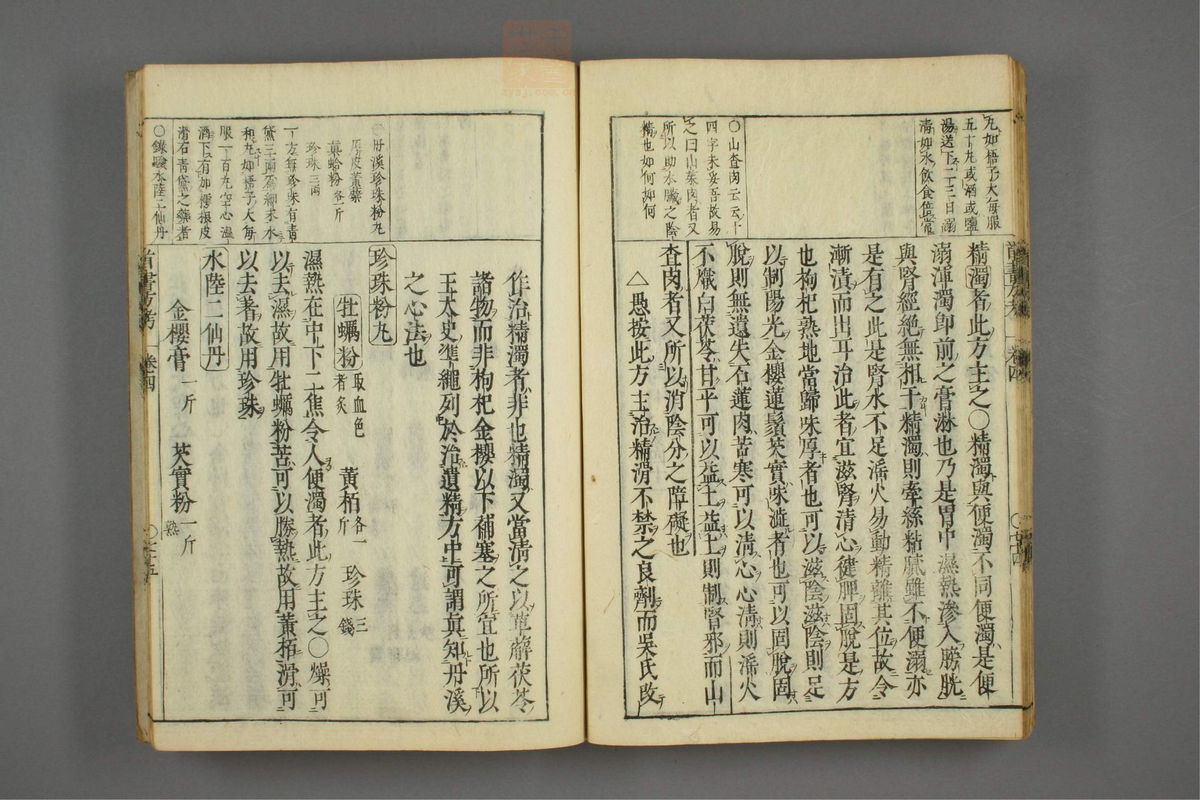 九如梧子大每服
五十九或酒或鹽
湯送下二三日溺
清如水飲食倍常
〇山査肉云云十
四字未妥吾故易
之曰山茱肉者又
所以助水臟之陰
精也如何如何
精濁者此方主之〇精濁與便濁不同便濁是便
溺渾濁卽前之膏淋也乃是胃中濕熱滲入膀胱
與腎經絶無相干精濁則牽絲粘膩雖不便溺亦
是有之此是腎水不足淫火易動精離其位故令
漸漬而出耳治此者宜滋腎清心健脾固脫是方
也枸杞熟地當歸味厚者也可以滋陰滋陰則足
以制陽光金櫻蓮鬚芡實味澁者也可以固脫固
脫則無遺失石蓮肉苦寒可以清心心清則淫火
不熾白茯苓甘平可以益土益土則制腎邪而山
査肉者又所以消陰分之障礙也
△愚按此方主治精滑不禁之良劑而吳氏改
首書方考 卷四 〇七四
作治精濁者非也精濁又當清之以萆薢茯苓
諸物而非枸杞金櫻以下補塞之所宜也所以
王太史準繩列於治遺精方中可謂眞知丹溪
之心法也
珍珠粉丸
牡蠣粉 取血色者炙 黃栢 各一斤 珍珠 三錢
濕熱在中下二焦令人便濁者此方主之〇燥可
以去濕故用牡蠣粉苦可以勝熱故用黃栢滑可
以去著故用珍珠
水陸二仙丹
金櫻膏 一斤 芡實粉 一斤熟
〇丹溪珍珠粉丸
厚皮黃蘗
眞蛤粉各一斤
珍珠三兩
一方無珍珠有靑
黛三兩爲細末水
和丸如梧子大每
服一百丸空心溫
酒下有如樗根皮
滑石靑黛之藥者
〇錄驗水陸二仙丹
首書方考 卷四 〇七五